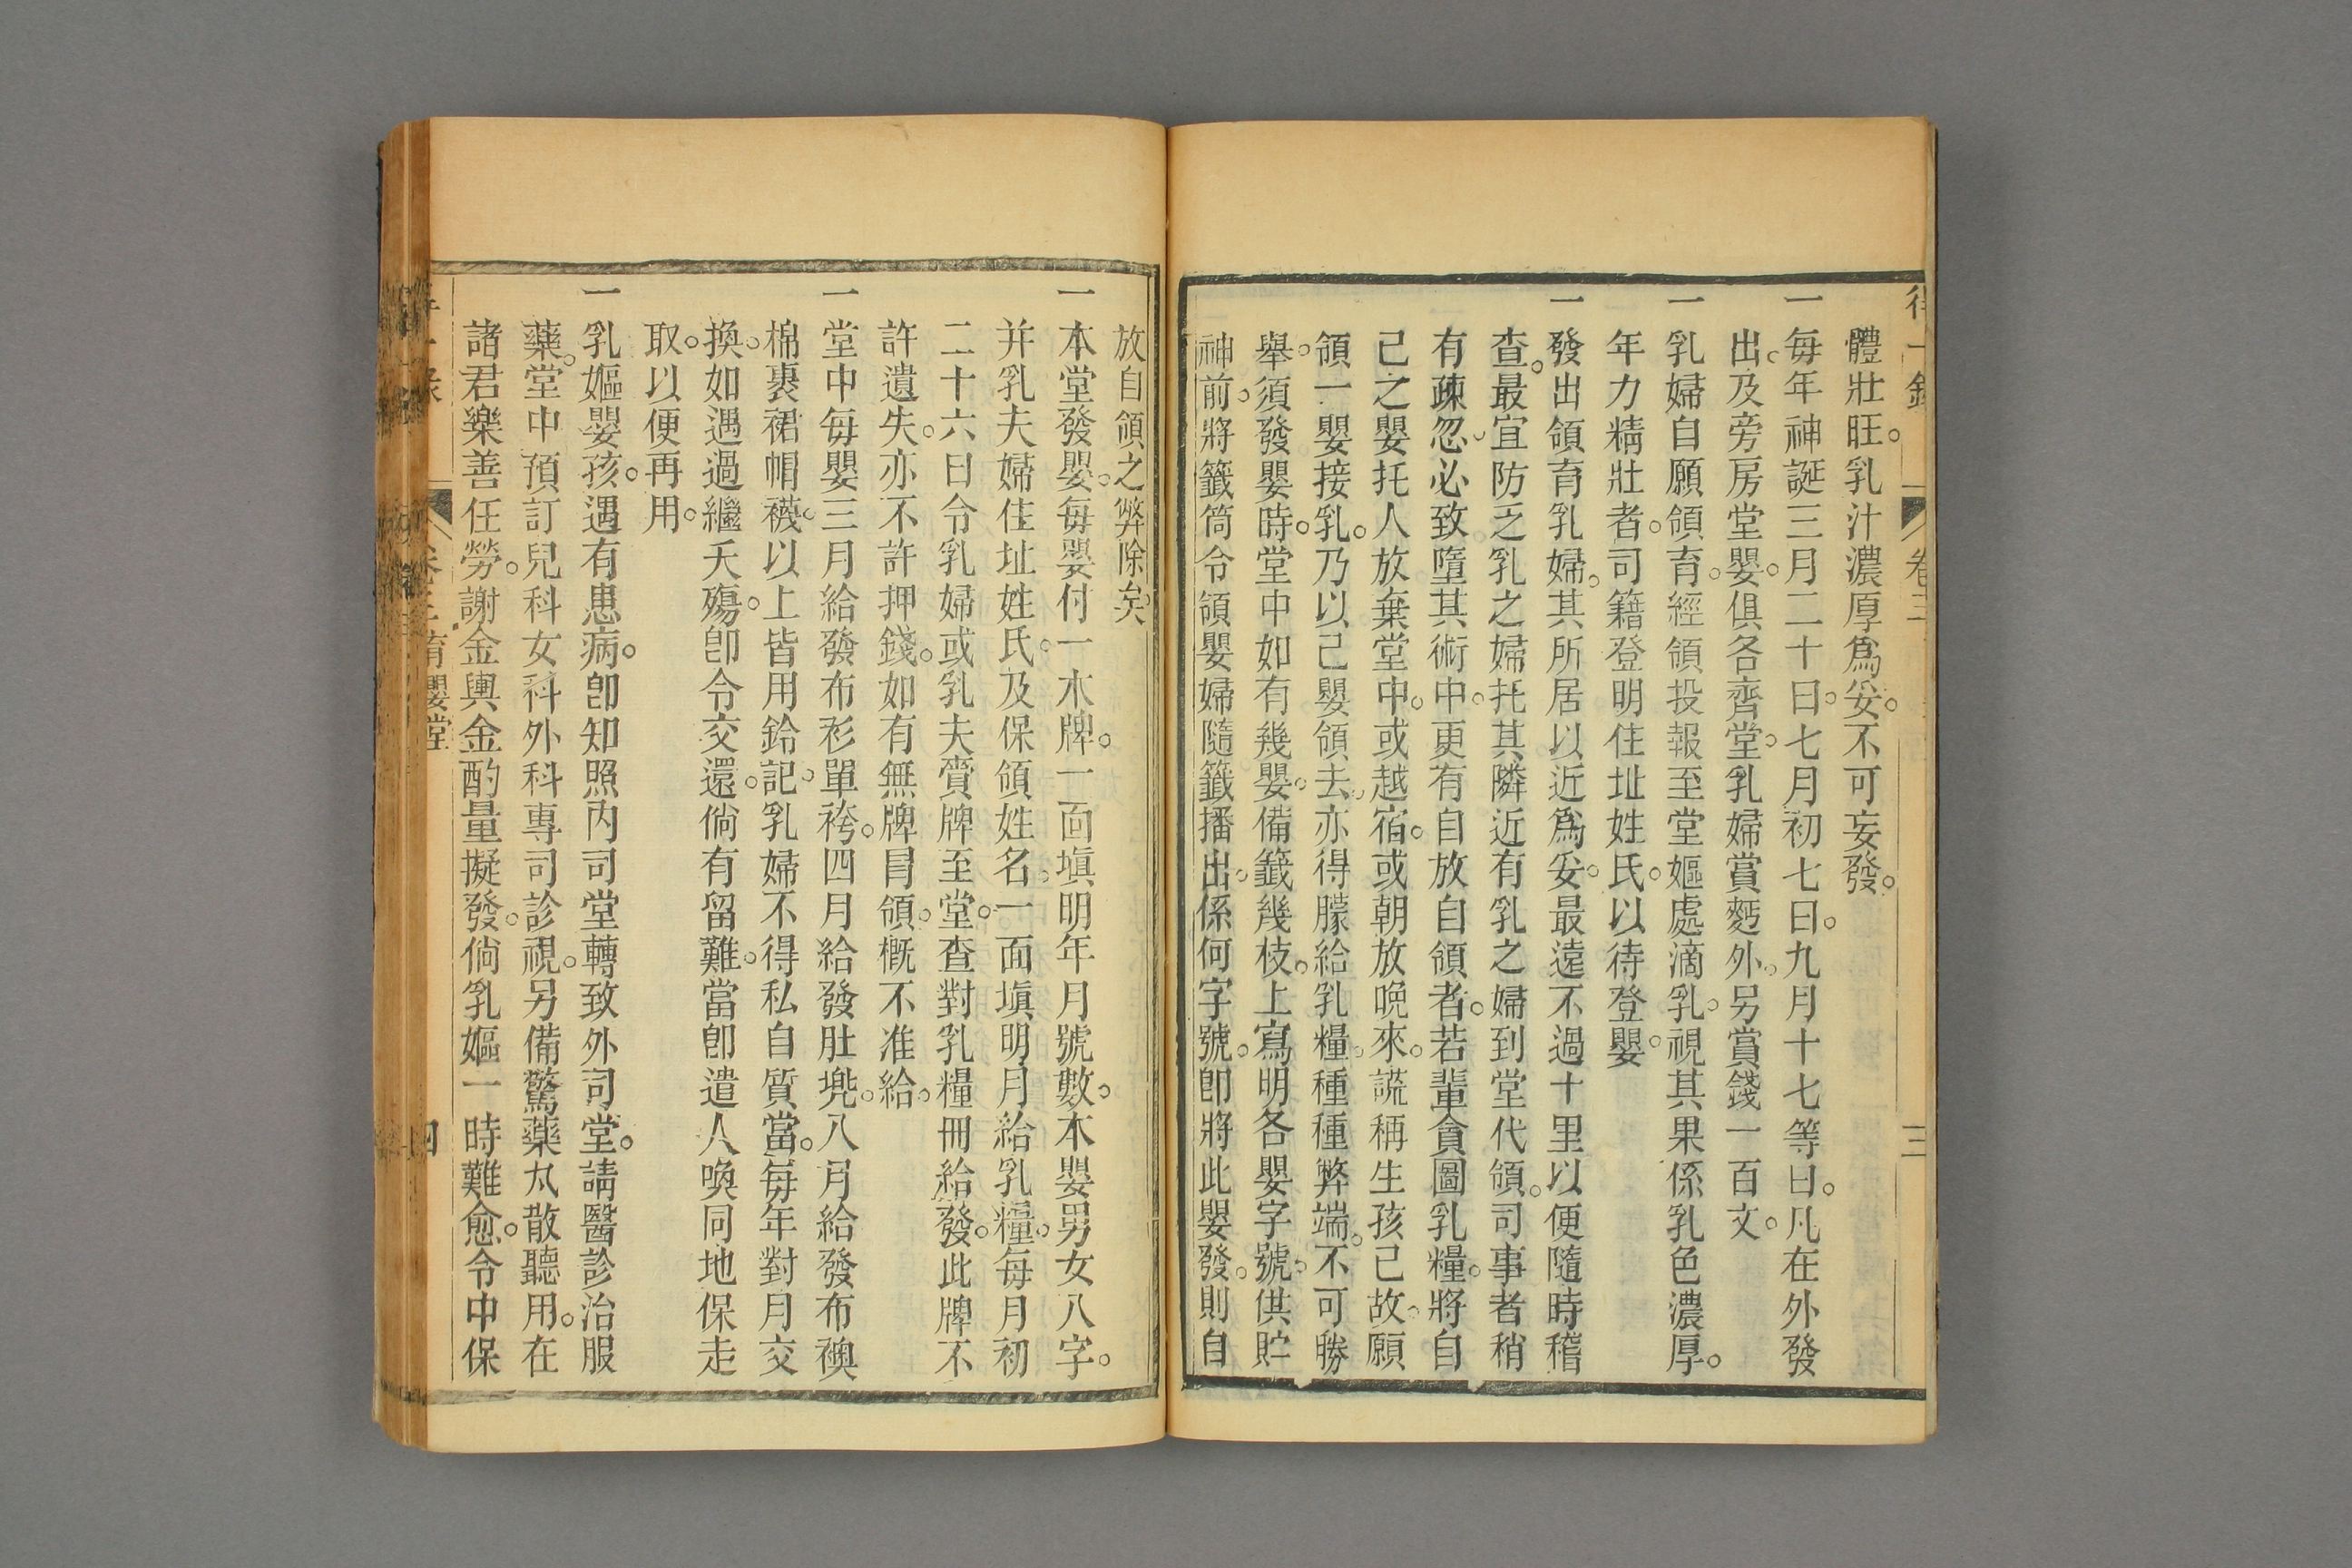 一錄 卷三 三
體壯旺。乳汁濃厚爲妥。不可妄發。
一每年神誕三月二十日。七月初七日。九月十七等日。凡在外發
出。及旁房堂嬰。俱各齊堂。乳婦賞麪外。另賞錢一百文。
一乳婦自願領育。經領投報至堂嫗處滴乳。視其果係乳色濃厚。
年力精壯者。司籍登明住址姓氏。以待登嬰。
一發出領育乳婦。其所居以近爲妥。最遠不過十里以便隨時稽
查。最宜防乏乳之婦托其隣近有乳之婦到堂代領。司事者稍
有疎忽。必致墮其術中。更有自放自領者。若輩貪圖乳糧。將自
己之嬰托人放棄堂中。或越宿。或朝放晚來。謊稱生孩已故。願
領一嬰接乳。乃以己嬰領去。亦得朦給乳糧。種種弊端。不可勝
舉。須發嬰時。堂中如有幾嬰。備籤幾枝。上寫明各嬰字號。供貯
神前。將籤筒令領嬰婦隨籤播出。係何字號。卽將此嬰發。則自
放自領之弊除矣。
一本堂發嬰。每嬰付一木牌。一面塡明年月號數。木嬰男女八字。
并乳夫婦住址姓氏。及保領姓名。一面塡明月給乳糧。每月初
二十六日令乳婦或乳夫賫牌至堂。查對乳糧冊給發。此牌不
許遺失。亦不許押錢。如有無牌冒領。槪不准給。
一堂中每嬰三月給發布衫單袴。四月給發肚兠。八月給發布襖
棉裹裙帽襪。以上皆用鈐記。乳婦不得私自質當。每年對月交
換。如遇過繼夭殤。卽令交還。倘有留難。當卽遣人喚同地保走
取。以便再用。
一乳嫗嬰孩。遇有患病。卽知照內司堂轉致外司堂。請醫診治服
藥。堂中預訂兒科女科外科專司診視。另備驚藥丸散聽用。在
諸君樂善任勞。謝金輿金酌量擬發。倘乳嫗一時難愈。令中保
一錄 卷三育嬰堂 四